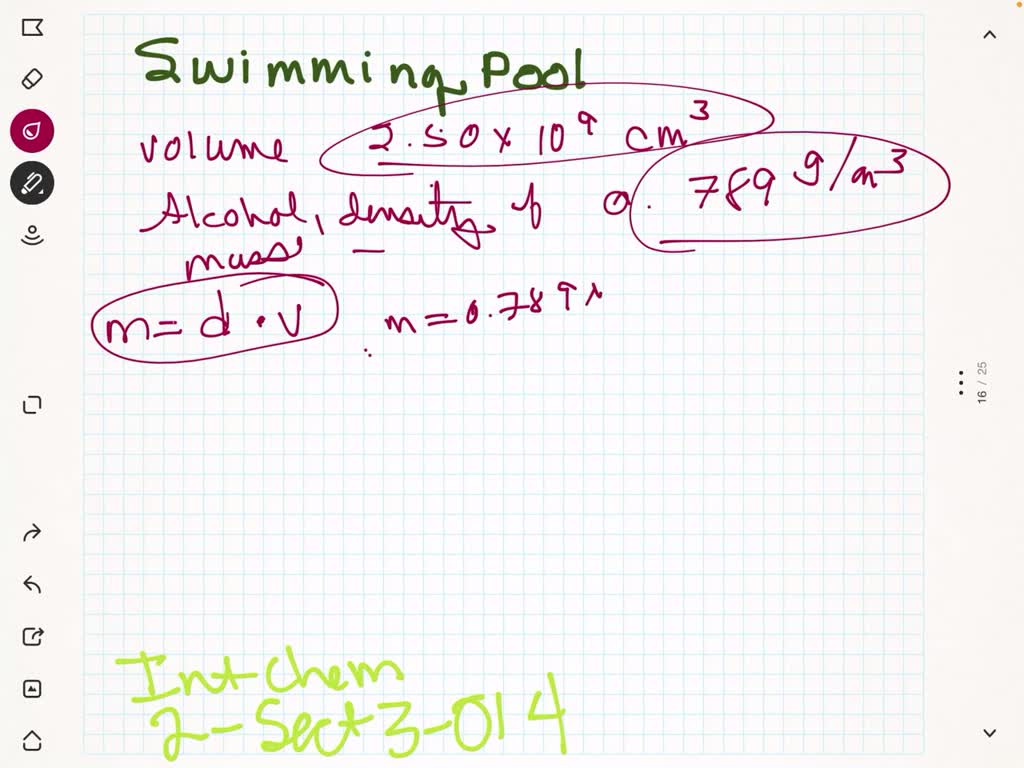 Swimming Pool
volume 2.50 x 10⁹ cm³
Alcohol, density of 0.789 g/m³
mass
m = d · v m = 0.789 x
16 / 25
Int Chem
2-Sect 3-014